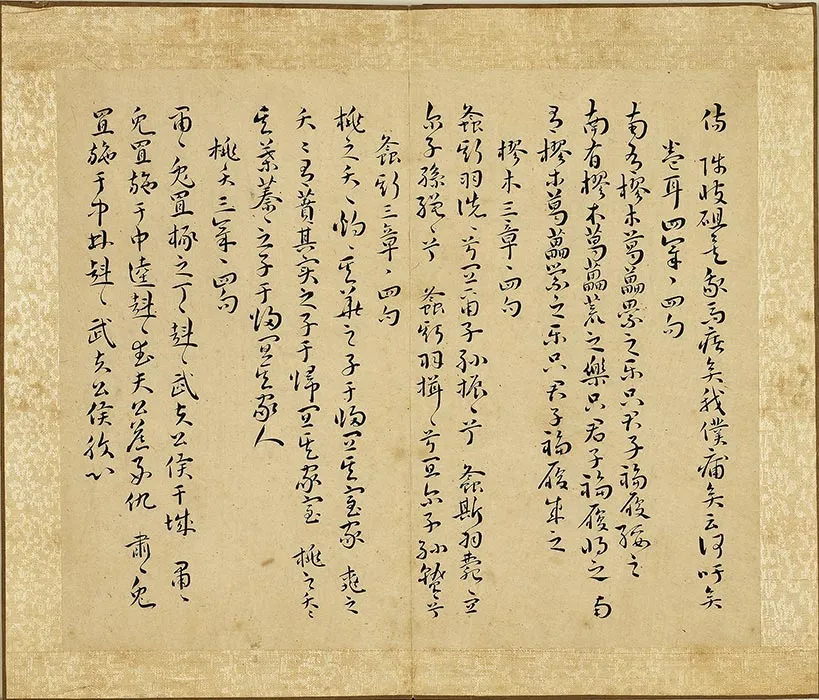 傷 陟彼砠矣我馬瘏矣我僕痡矣云何吁矣
卷耳四章〻四句
南有樛木葛藟纍之乐只君子福履綏之
南有樛木葛藟荒之樂只君子福履將之 南
有樛木葛藟縈之乐只君子福履成之
樛木三章〻四句
螽斯羽詵〻兮宜爾子孫振〻兮 螽斯羽薨〻宜
尔子孫繩〻兮 螽斯羽揖〻兮宜尔子孫蟄〻兮
螽斯三章〻四句
桃之夭〻灼〻其華之子于歸宜其室家 桃之
夭〻有蕡其实之子于歸宜其家室 桃之夭〻
其葉蓁〻之子于歸宜其家人
桃夭三章〻四句
肅〻兔罝椓之丁〻赳〻武夫公侯干城 肅〻
兔罝施于中逵赳〻武夫公侯好仇 肅〻兔
罝施于中林赳〻武夫公侯腹心